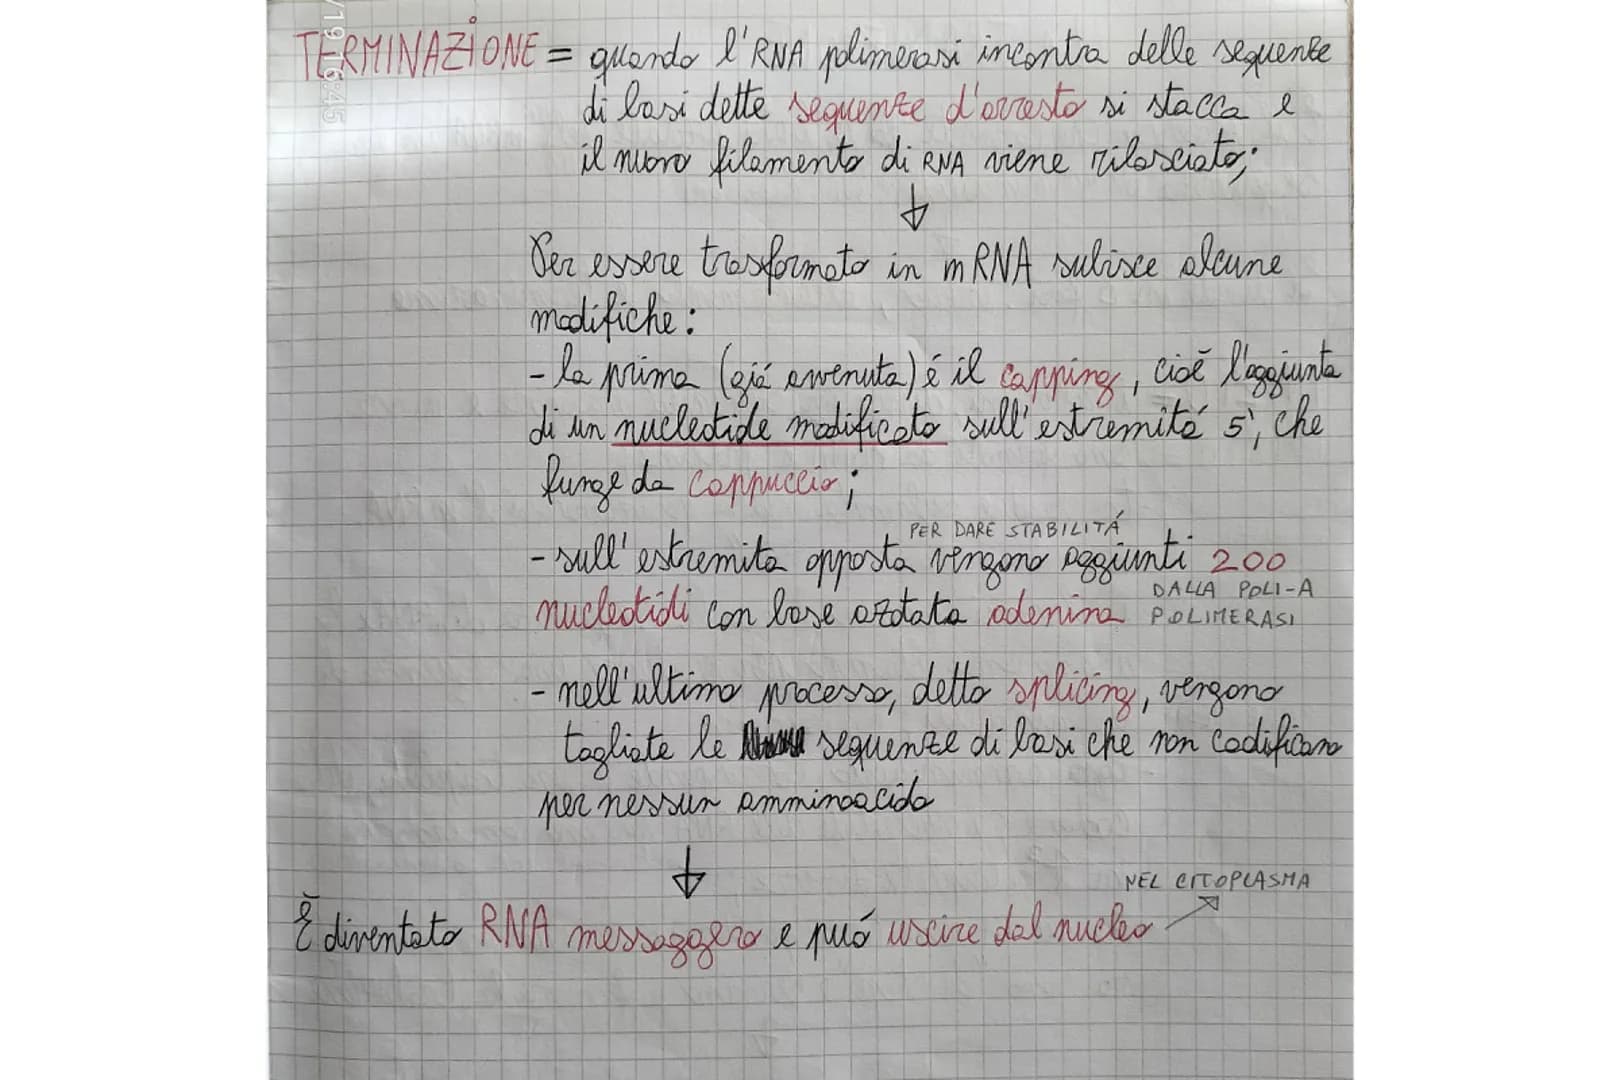 /19 16:45
TERMINAZIONE = quando l'RNA polimerasi incontra delle sequenze
di basi dette sequenze d'arresto si stacca e
il nuovo filamento di RNA viene rilasciato;
↓
Per essere trasformato in mRNA subisce alcune
modifiche:
- la prima (giá avvenuta) é il capping, cioé l'aggiunta
di un nucleotide modificato sull'estremitá 5', che
funge da cappuccio;
PER DARE STABILITÁ
- sull'estremita opposta vengono aggiunti 200
nucleotidi con base azotata adenina DALLA POLI-A
POLIMERASI
- nell'ultimo processo, detto splicing, vengono
tagliate le sequenze di basi che non codificano
per nessun amminoacido
↓
NEL CITOPLASMA
É diventato RNA messaggero e puó uscire dal nucleo